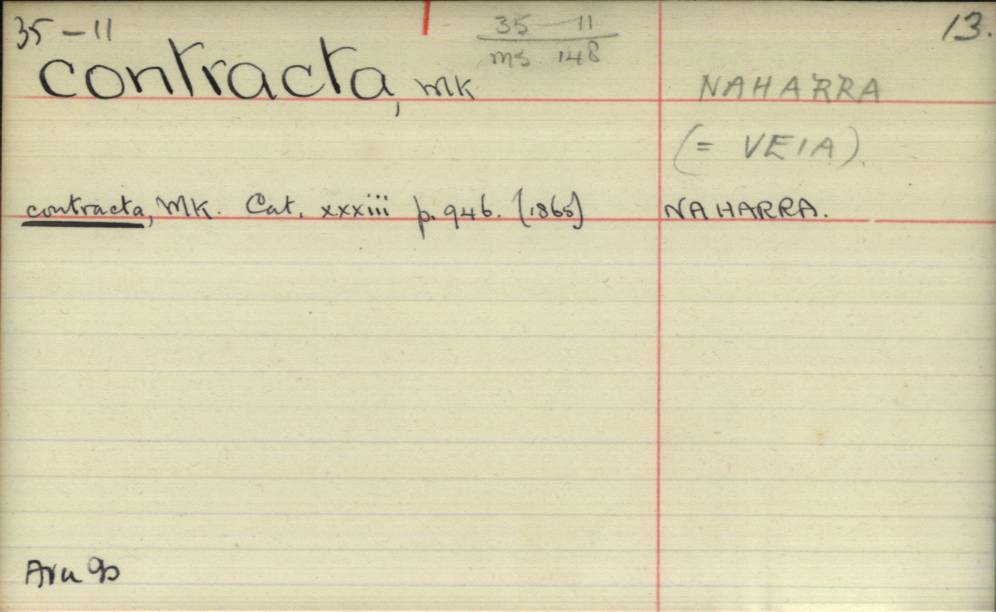 35-11
35-11
ms. 148
13.
contracta, MK
NAHARRA
(= VEIA).
contracta, MK. Cat. xxxiii p. 946. (1865) NAHARRA.
Aru